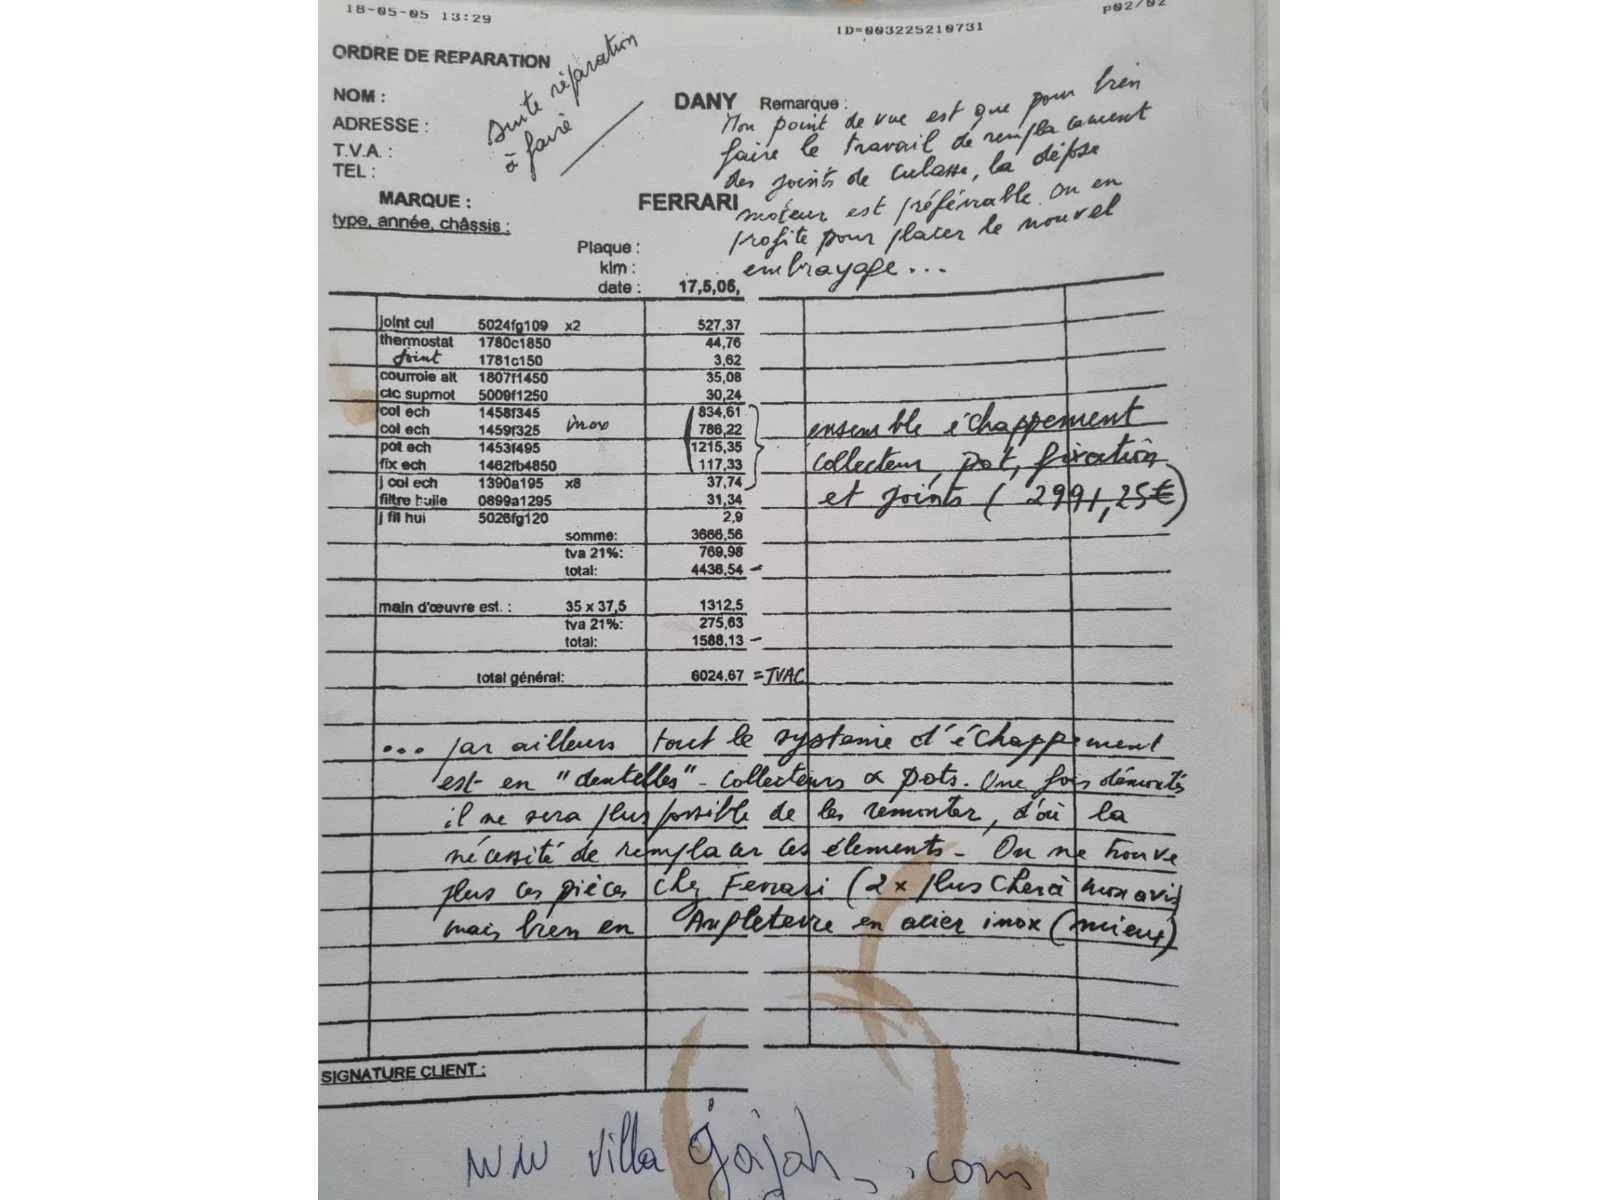 18-05-05 13:29
ID=003225210731
p02/02
ORDRE DE REPARATION
suite réparation
à faire
NOM :
DANY
Remarque :
ADRESSE :
T.V.A. :
TEL :
Mon point de vue est que pour bien
faire le travail de remplacement
des joints de culasse, la dépose
moteur est préférable. On en
profite pour placer le nouvel
embrayage...
MARQUE :
FERRARI
type, année, châssis :
Plaque :
klm :
date : 17,5,05,
joint cul 5024fg109 x2 527,37
thermostat 1780c1850 44,76
joint 1781c150 3,62
courroie alt 1807f1450 35,08
clc supmot 5009f1250 30,24
col ech 1458f345 834,61
col ech 1459f325 inox 786,22
pot ech 1453f495 1215,35
fix ech 1462fb4850 117,33
j col ech 1390a195 x8 37,74
filtre huile 0899a1295 31,34
j fil hui 5026fg120 2,9
ensemble échappement
collecteur, pot, fixation
et joints (2991,25€)
somme: 3666,56
tva 21%: 769,98
total: 4436,54 –
main d'œuvre est. : 35 x 37,5 1312,5
tva 21%: 275,63
total: 1588,13 –
total général: 6024,67 = TVAC
... par ailleurs tout le système d'échappement
est en "dentelles" - collecteurs & pots. Une fois démontés
il ne sera plus possible de les remonter, d'où la
nécessité de remplacer ces élements - On ne trouve
plus ces pièces chez Ferrari (2 x plus cher à mon avis
mais bien en Angleterre en acier inox (mieux)
SIGNATURE CLIENT :
www villa gajah .com